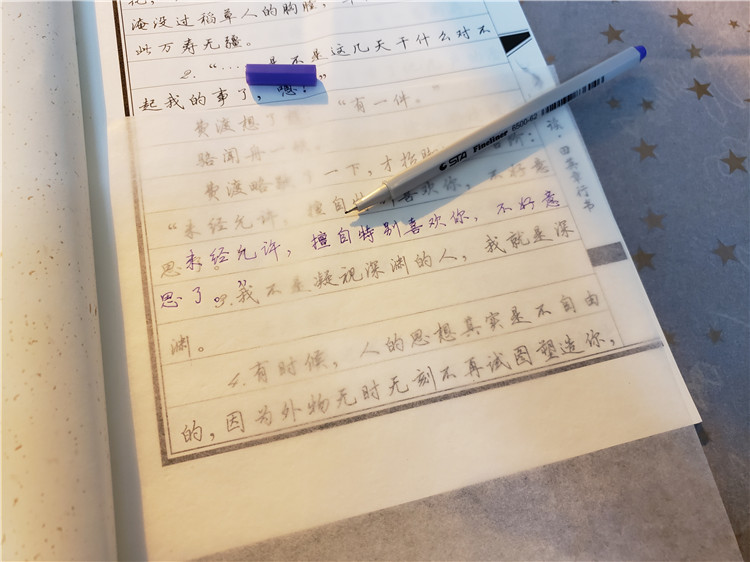 淹没过稻草人的胸膛，
此万寿无疆。
2."……是不是这几天干什么对不
起我的事了，嗯？"
费渡想了 "有一件。"
骆闻舟一
费渡略 了一下，才
"未经允许，擅自 喜欢你，不好意
未经允许，擅自特别喜欢你，不好意
思了。"
3.我不是凝视深渊的人，我就是深
渊。
4.有时候，人的思想其实是不自由
的，因为外物无时无刻不再试图塑造你，
STA Fineliner 6500-62